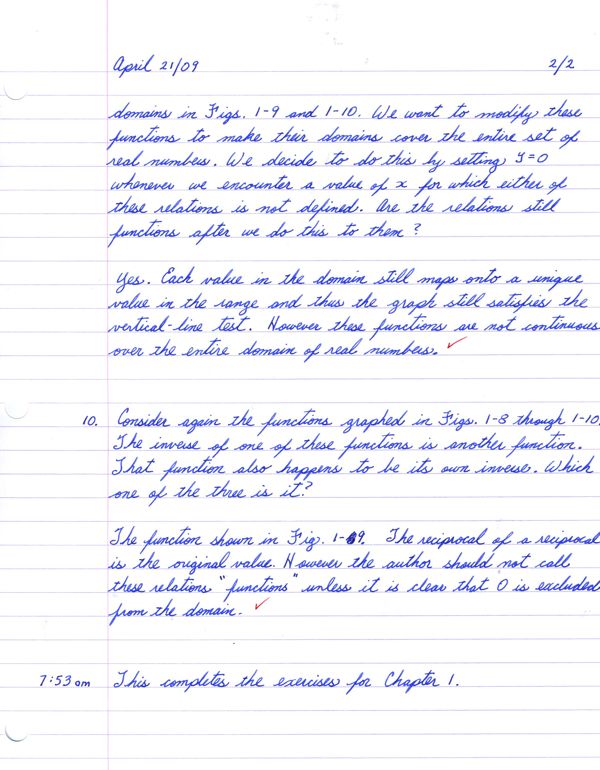 April 21/09 2/2
domains in Figs. 1-9 and 1-10. We want to modify these
functions to make their domains cover the entire set of
real numbers. We decide to do this by setting y=0
whenever we encounter a value of x for which either of
these relations is not defined. Are the relations still
functions after we do this to them?
Yes. Each value in the domain still maps onto a unique
value in the range and thus the graph still satisfies the
vertical-line test. However these functions are not continuous
over the entire domain of real numbers.
10. Consider again the functions graphed in Figs. 1-8 through 1-10.
The inverse of one of these functions is another function.
That function also happens to be its own inverse. Which
one of the three is it?
The function shown in Fig. 1-9. The reciprocal of a reciprocal
is the original value. However the author should not call
these relations "functions" unless it is clear that 0 is excluded
from the domain.
7:53 am This completes the exercises for Chapter 1.